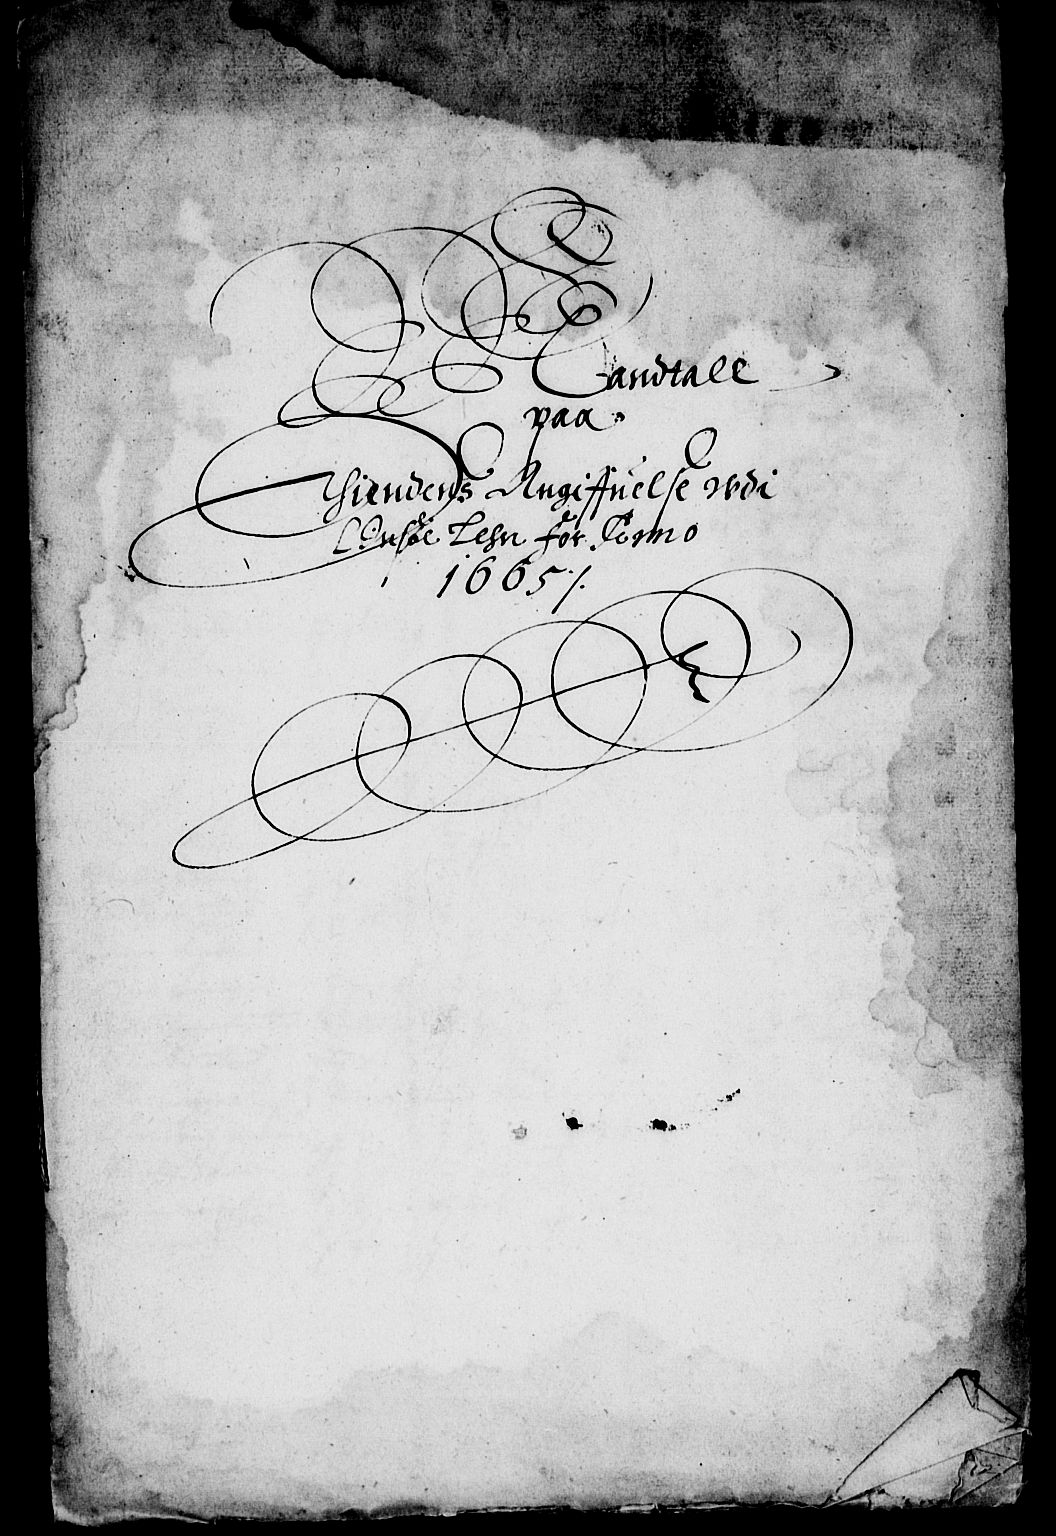 Mandtall
paa
Thiendens Angiffuelse wdi
Lehn for Anno
1665 /.